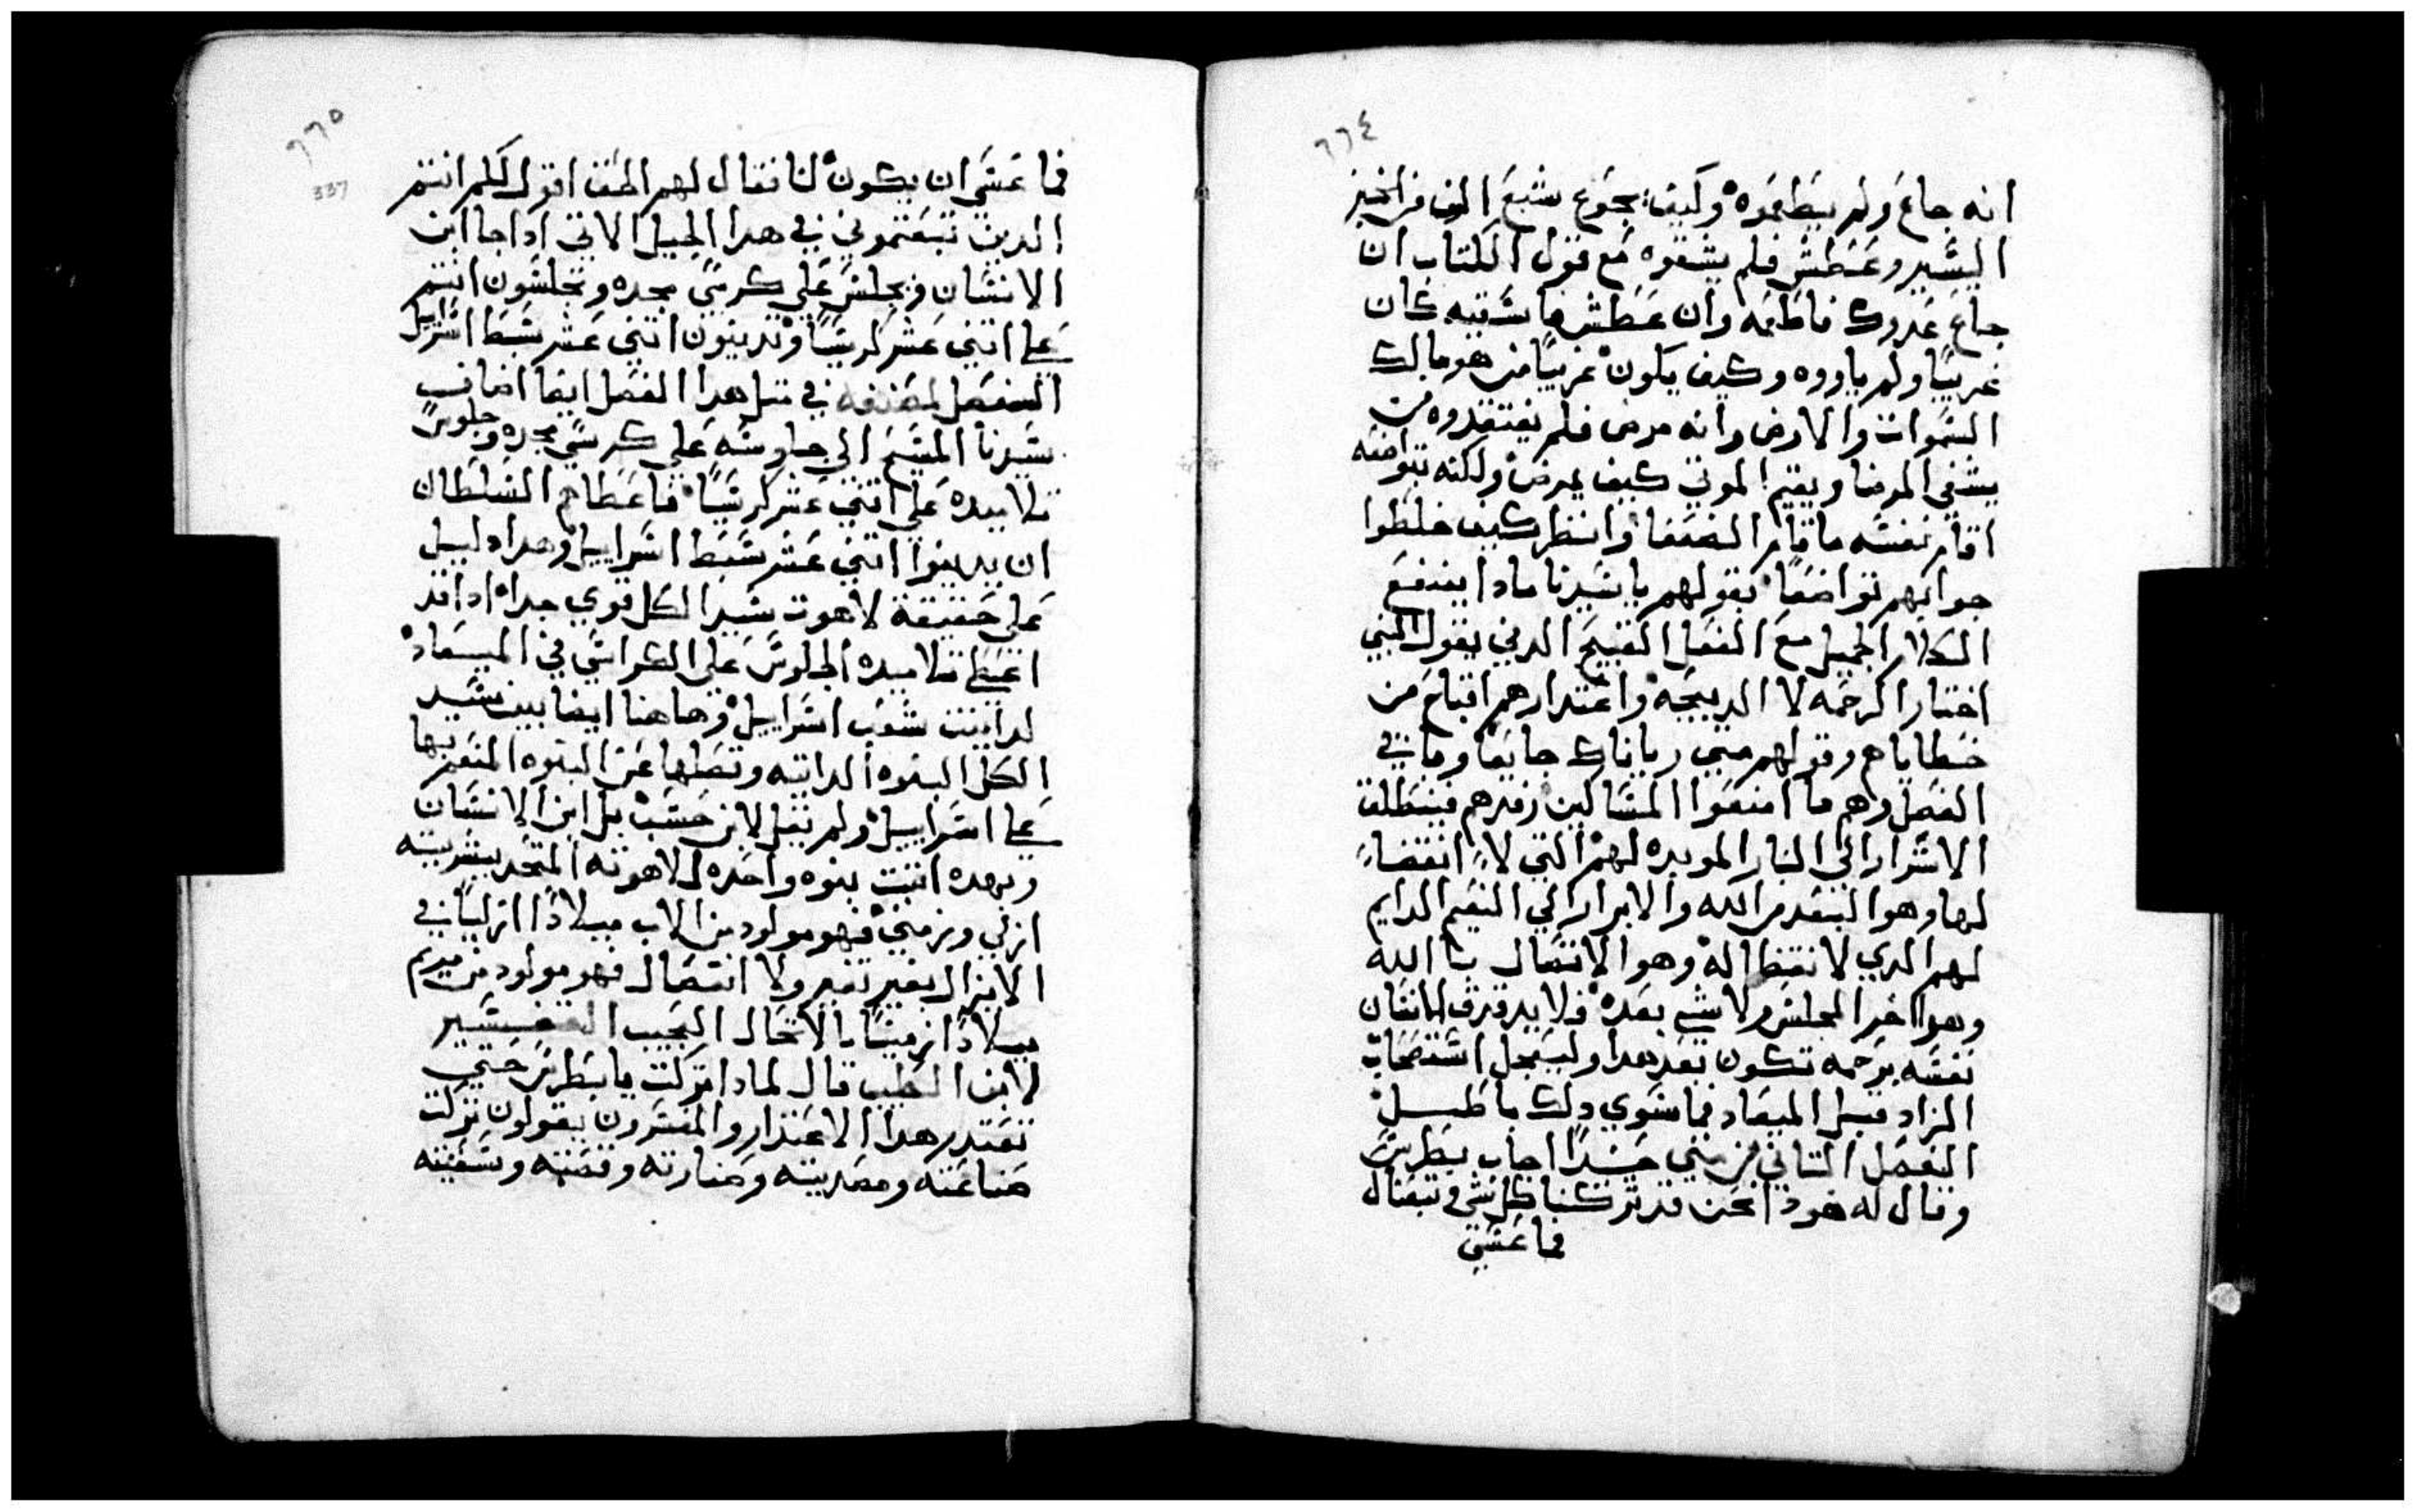 ٦٦٤
انه جاع ولم يطعموه وكيف يجوع مشبع الوف من الخبز
اليسير وعطش فلم يسقوه مع قول الكتاب ان
جاع عدوك فاطعمه وان عطش فاسقيه كان
غريبًا ولم ياووه وكيف يكون غريبًا من هو مالك
السموات والارض وانه مرض فلم يفتقدوه من
يشفي المرضا ويقيم الموتي كيف يمرض ولكنه بتواضعه
اقام نفسه مقام الضعفا وانظر كيف خلطوا
جوابهم تواضعًا بقولهم يا سيدنا مادا ينفع
الكلام الجميل مع الفعل القبيح الدي يقول النبي
اختار الرحمه لا الدبيحه واعتدارهم اقبح من
خطاياهم وقولهم متي رايناك جايعًا وما في
الفصل وهم ما امنعوا المسالين رفدهم فينطلق
الاشرار الي النار الموبده لهم التي لا انقضاءً
لها وهو البعد من الله والابرار الي النعيم الدايم
لهم الدي لا انقضا له وهو الاتصال بالله
وهو اخر المجلس ولا شي بعده فلا يدقدق الانسان
نفسه برحمه تكون بعد هدا وليعجل استصحاب
الزاد قبل الميعاد فما سوي دلك باطل
الفصل التاني من متي حينيدًا اجاب بطرس
وقال له هودا نحن قد تركنا كل شي وتبعناك
فما عسي
٦٦٥
337
فما عسي ان يكون لنا فقال لهم الحق اقول لكم انتم
الدين تبعتموني في هدا الجيل الاتي ادا جا ابن
الانسان ويجلس علي كرسي مجده وتجلسون انتم
علي اتني عشر كرسيًا وتدينون اتني عشر سبط اسراييل
المفصل لمصنفه في متل هدا الفصل ايضا اضاف
سيدنا المسيح الي جلوسه علي كرسي مجده وجلوس
تلاميده علي اتني عشر كرسيًا فاعطاهم السلطان
ان يدينوا اتني عشر سبط اسراييل وهدا دليل
علي حقيقة لاهوت سيد الكل قوي جدا ادا قد
اعطي تلاميده الجلوس علي الكراسي في الميعاد
لداينت شعب اسراييل وهاهنا ايضا بين سيد
الكل البنوه الداتيه وفصلها عن البنوه المنعم بها
علي اسراييل ولم يقل لابن حسب بل ابن الانسان
وبهده اتبت بنوه واحده للاهوته المتحد ببشريته
ازلي وزمني فهو مولود من الاب ميلادًا ازليًا في
الازل بغير تغير ولا انفصال فهو مولود من مريم
ميلادًا زمنيًا بالاتحاد العجيب التفسير
لابن الطيب قال لمادا تركت يا بطرس حتي
تعتدر هدا الاعتدار والمفسرون يقولون تركت
صناعته ومصديته وصنارته وقصبته وسفينته